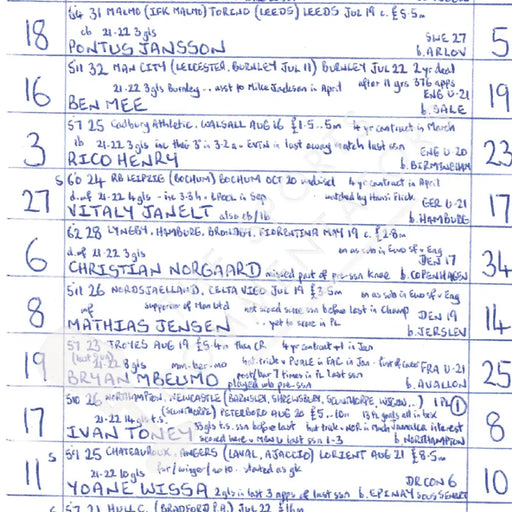 6'4 31 MALMO (IFK MALMO) TORINO (LEEDS) LEEDS JUL 19 c. £5.5m
18 cb 21-22 3 gls SWE 27 5
PONTUS JANSSON b. ARLOV
5'11 32 MAN CITY (LEICESTER, BURNLEY JUL 11) BURNLEY JUL 22 2 yr deal
16 21-22 3 gls Burnley .. asst to Mike Jackson in April after 11 yrs 376 apps ENG U-21 19
BEN MEE b. SALE
5'7 25 Cadbury Athletic. WALSALL AUG 16 £1.5..5m 4 yr contract in March
3 lb 21-22 3 gls inc this 3 in 3-2 a - EVTN is last away match last ssn ENG U-20 23
RICO HENRY b. BIRMINGHAM
s 6'0 24 RB LEIPZIG (BOCHUM) BOCHUM OCT 20 undiscl 4 yr contract in April
27 d.mf 21-22 4 gls - inc 3-3 h - LPOOL in Sep watched by Hansi Flick GER U-21 17
VITALY JANELT also cb/lb b. HAMBURG
6'2 28 LYNGBY, HAMBURG, BRONDBY, FIORENTINA MAY 19 c. £2.8m
6 d.mf 21-22 3 gls on as sub in Euro sf v Eng DEN 17 34
CHRISTIAN NORGAARD missed part of pre-ssn knee b. COPENHAGEN
5'11 26 NORDSJAELLAND, CELTA VIGO JUL 19 £3.5m on as sub in Euro sf v Eng
8 mf supporter of Man Utd not scored since ssn before last in Champ DEN 19 14
MATHIAS JENSEN .. yet to score in PL b. JERSLEV
5'7 23 TROYES AUG 19 £5.4m then CR 4 yr contract +1 in Jan
19 21-22 8 gls mm-ber-mo hat-trick v PVALE in FAC in Jan FRA U-21 25
BRYAN MBEUMO post/bar 7 times in PL last ssn played wb pre-ssn b. AVALLON
5'10 26 NORTHAMPTON, NEWCASTLE (BARNSLEY, SHREWSBURY, SCUNTHORPE, WIGAN..) 1 PL 1
17 21-22 14 gls t.s. (SCUNTHORPE) PETERBORO AUG 20 £5..10m 8
IVAN TONEY 33 gls t.s. ssn before last b. NORTHAMPTON
scored here v MAN U last ssn 1-3
s 5'9 25 CHATEAUROUX, ANGERS (LAVAL, AJACCIO) LORIENT AUG 21 £8.5m
11 21-22 10 gls for/winger/no 10. started as gk DR CON 6 10
YOANE WISSA 2 gls in last 3 apps of last ssn b. EPINAY SOUS SENART
s 5'7 21 HULL C. (BRADFORD P.A.) JUL 22 £16m